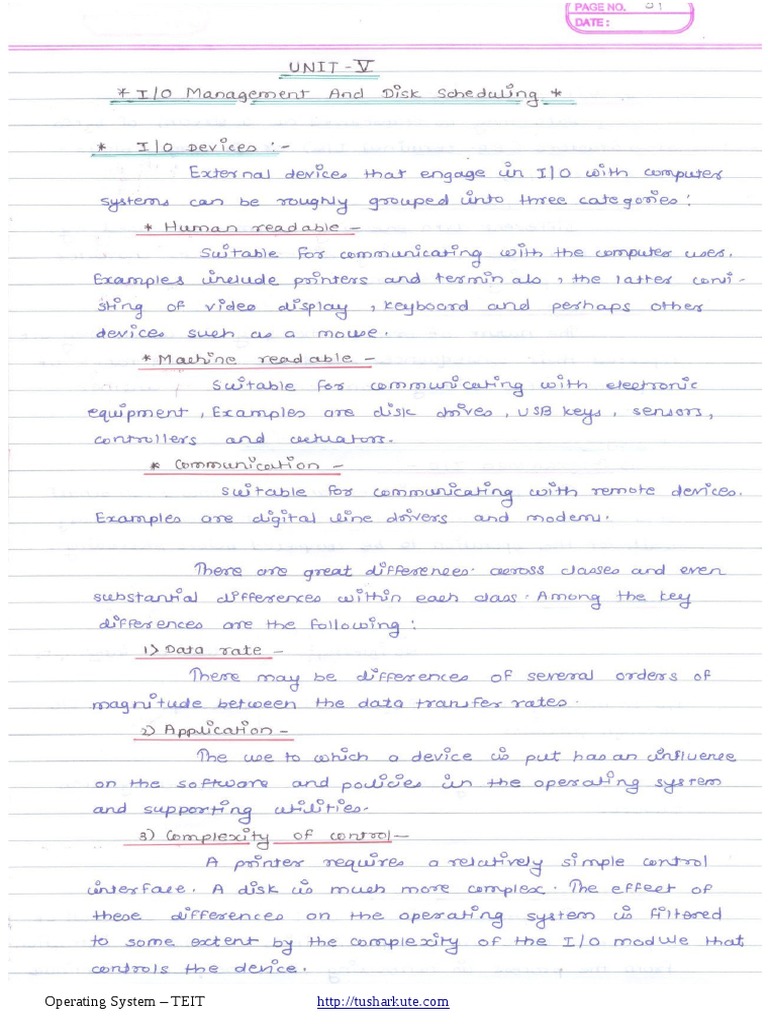 PAGE NO. 51
DATE:
UNIT-V
* I/O Management And Disk Scheduling *
* I/O Devices :-
External devices that engage in I/O with computer
systems can be roughly grouped into three categories:
* Human readable -
Suitable for communicating with the computer uses.
Examples include printers and terminals, the latter consi-
sting of video display, keyboard and perhaps other
devices such as a mouse.
* Machine readable -
Suitable for communicating with electronic
equipment, Examples are disk drives, USB keys, sensors,
controllers and actuators.
* Communication -
Suitable for communicating with remote devices.
Examples are digital line drivers and modem.
There are great differences across classes and even
substantial differences within each class. Among the key
differences are the following:
1) Data rate -
There may be differences of several orders of
magnitude between the data transfer rates.
2) Application -
The use to which a device is put has an influence
on the software and policies in the operating system
and supporting utilities.
3) Complexity of control -
A printer requires a relatively simple control
interface. A disk is much more complex. The effect of
these differences on the operating system is filtered
to some extent by the complexity of the I/O module that
controls the device.
Operating System – TEIT http://tusharkute.com